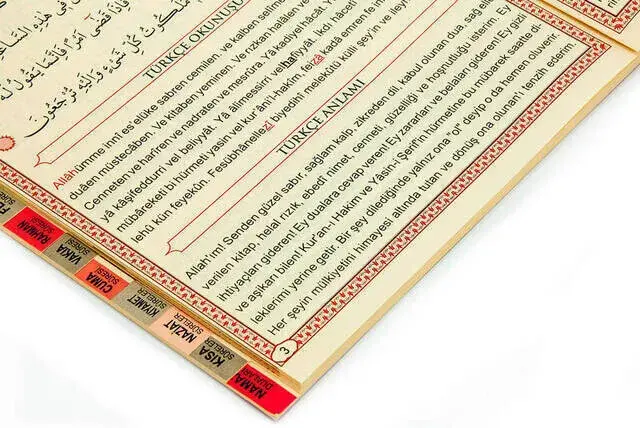 فِى هٰذِهِ السَّاعَةِ
فَاِذَا قَضٰى اَمْرًا فَاِنَّمَا يَقُولُ لَهُ
مَلَكُوتُ كُلِّ شَيْءٍ وَاِلَيْهِ تُرْجَعُونَ
TÜRKÇE OKUNUŞU
Allâhümme innî es'elüke sabren cemîlen, ve kalben selîmen
duâen müstecâben, Ve kitâben yemînen, Ve rızkan halâlen ve
Cenneten ve harîren ve nadraten ve mesrûra, Yâ kadiyel hâcât, Yâ
yâ kâşifeddurri vel beliyyât, Yâ âlimessirri vel hafiyyât, İkdi hâcetî
mübâreketi bi hürmeti yasin vel kur'âni'l-hakîm, feizâ kadâ emren fe
lehû kün feyekûn. Fesübhânellezî biyedihî melekûtü külli şey'in ve ileyhi
TÜRKÇE ANLAMI
Allah'ım! Senden güzel sabır, sağlam kalp, zikreden dil, kabul olunan dua, sağ
verilen kitap, helal rızık, ebedi nimet, cenneti, güzelliği ve hoşnutluğu isterim. Ey
ihtiyaçları gideren! Ey dualara cevap veren! Ey zararları ve belaları gideren! Ey gizli
ve aşikarı bilen! Kur'an-ı Hakim ve Yâsin-i Şerif'in hürmetine bu mübarek saatte di-
leklerimi yerine getir. Bir şey dilediğinde yalnız ona "ol" deyip o da hemen oluverir.
Her şeyin mülkiyetini himayesi altında tutan ve dönüş ona olunan'ı tenzih ederim.
3
RAHMAN
SÛRESİ
VAKIA
SÛRESİ
CUMA
SÛRESİ
KIYAMET
SÛRELER
NAZİAT
SÛRELER
KISA
SÛRELER
NAMAZ
DUALARI